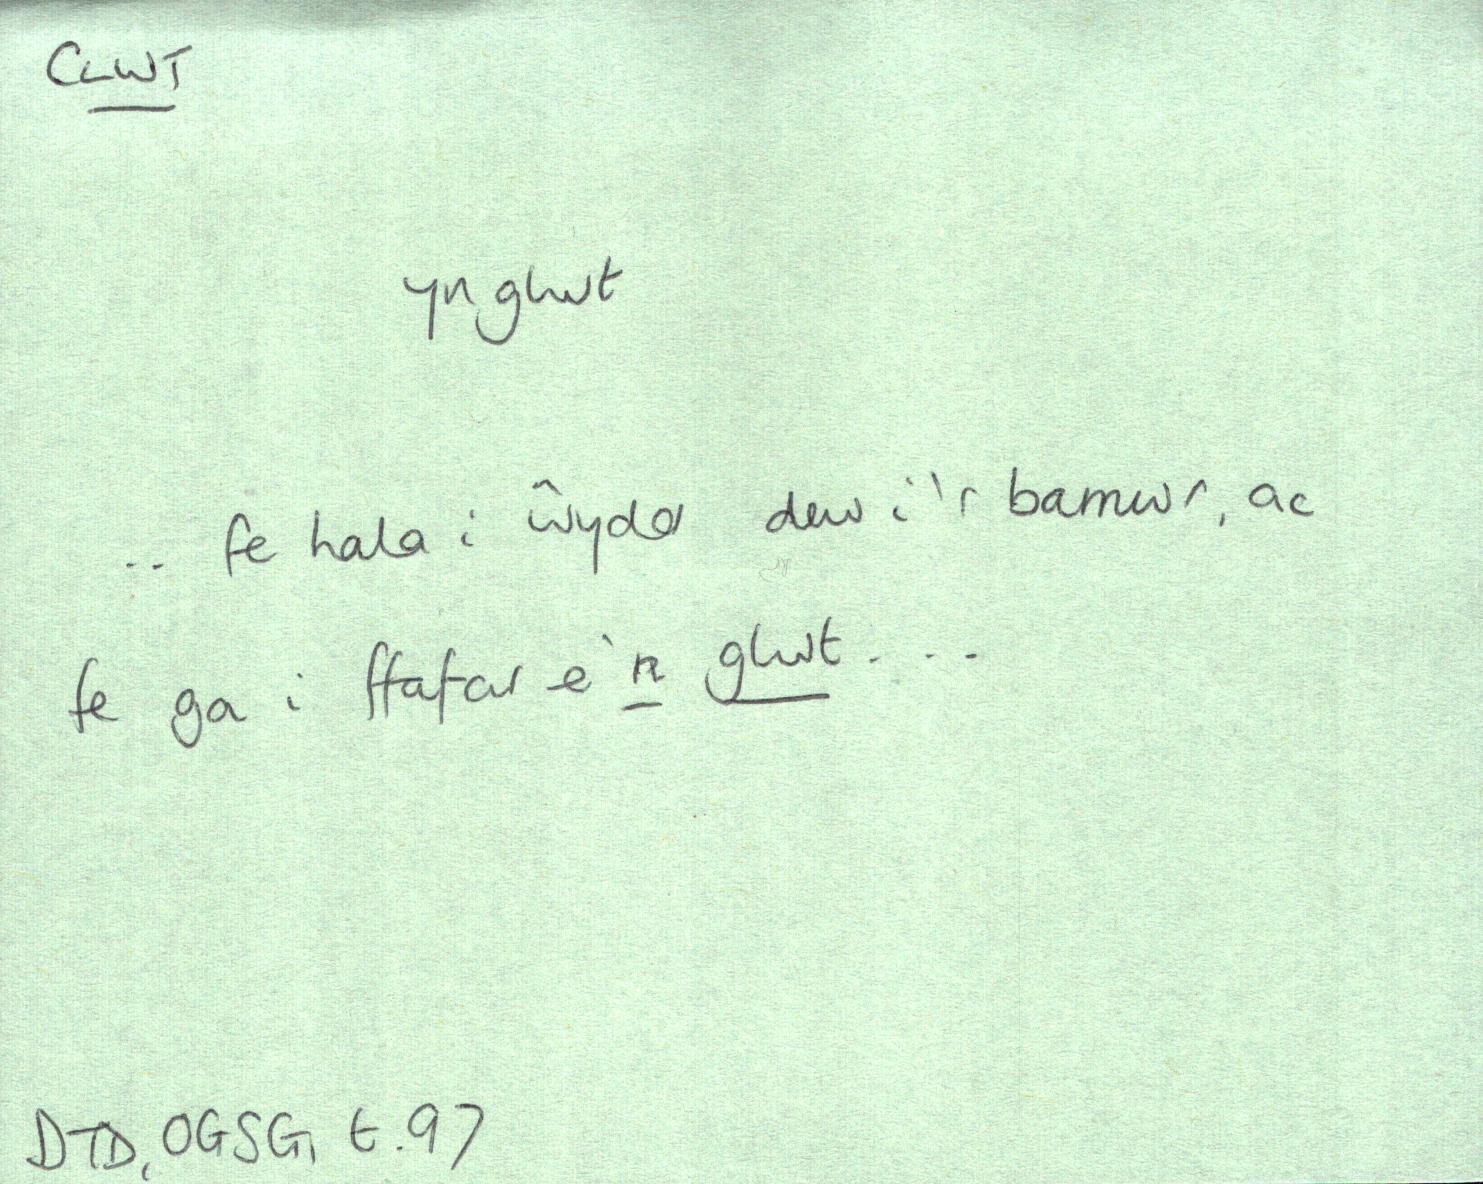 CLWT
yn glwt
.. fe hala i ŵydd dew i'r barnwr, ac
fe ga i ffafar e'n glwt. . . .
DTD, OGSG, t.97